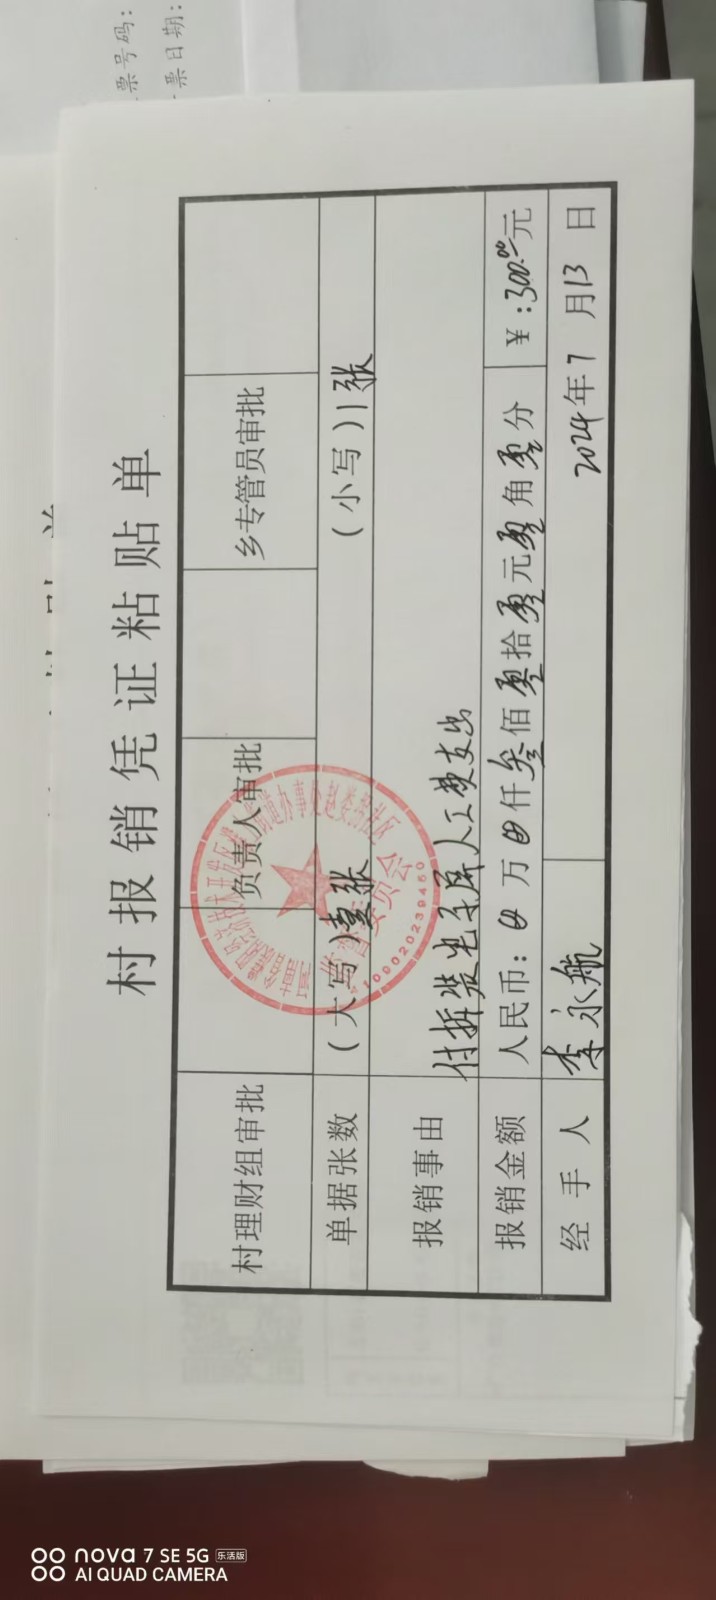 票号码:
票日期:
村报销凭证粘贴单
村理财组审批 负责人审批 乡专管员审批
单据张数 (大写)壹张 (小写)1张
报销事由 付拆装电子屏人工费支出
报销金额 人民币: 万 仟叁佰零拾零元零角零分 ¥:300.00元
经手人 李永航 2024年7月13日
监督委员会
4109020239460
nova 7 SE 5G 乐活版
AI QUAD CAMERA